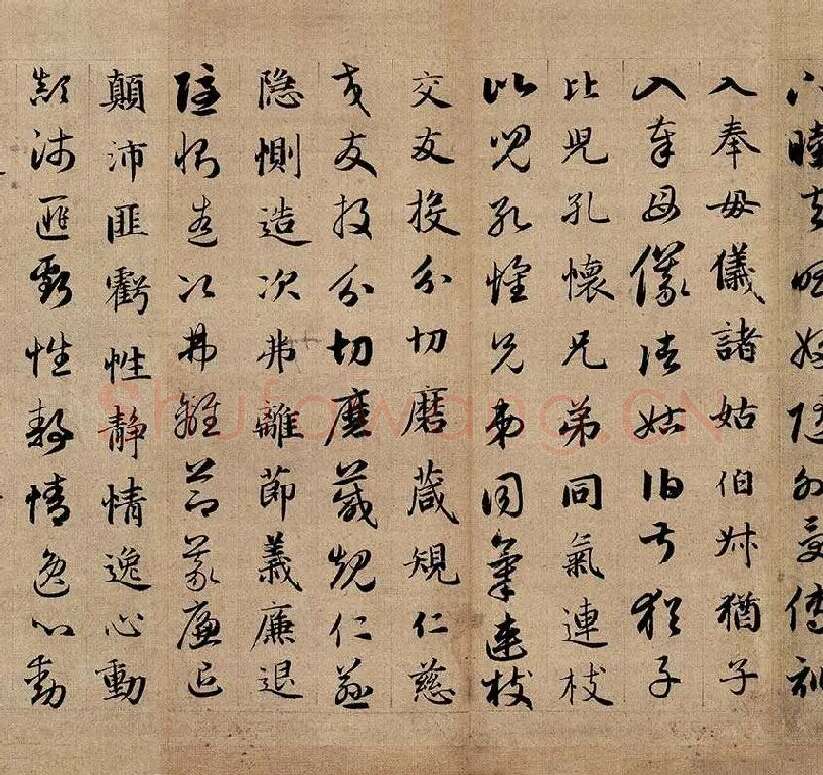 下睦夫唱婦隨外受傅訓
入奉母儀諸姑伯叔猶子
入奉母儀諸姑伯叔猶子
比兒孔懷兄弟同氣連枝
比兒孔懷兄弟同氣連枝
交友投分切磨箴規仁慈
交友投分切磨箴規仁慈
隐惻造次弗離節義廉退
隐惻造次弗離節義廉退
顛沛匪虧性静情逸心動
顛沛匪虧性静情逸心動
Shufawang.CN